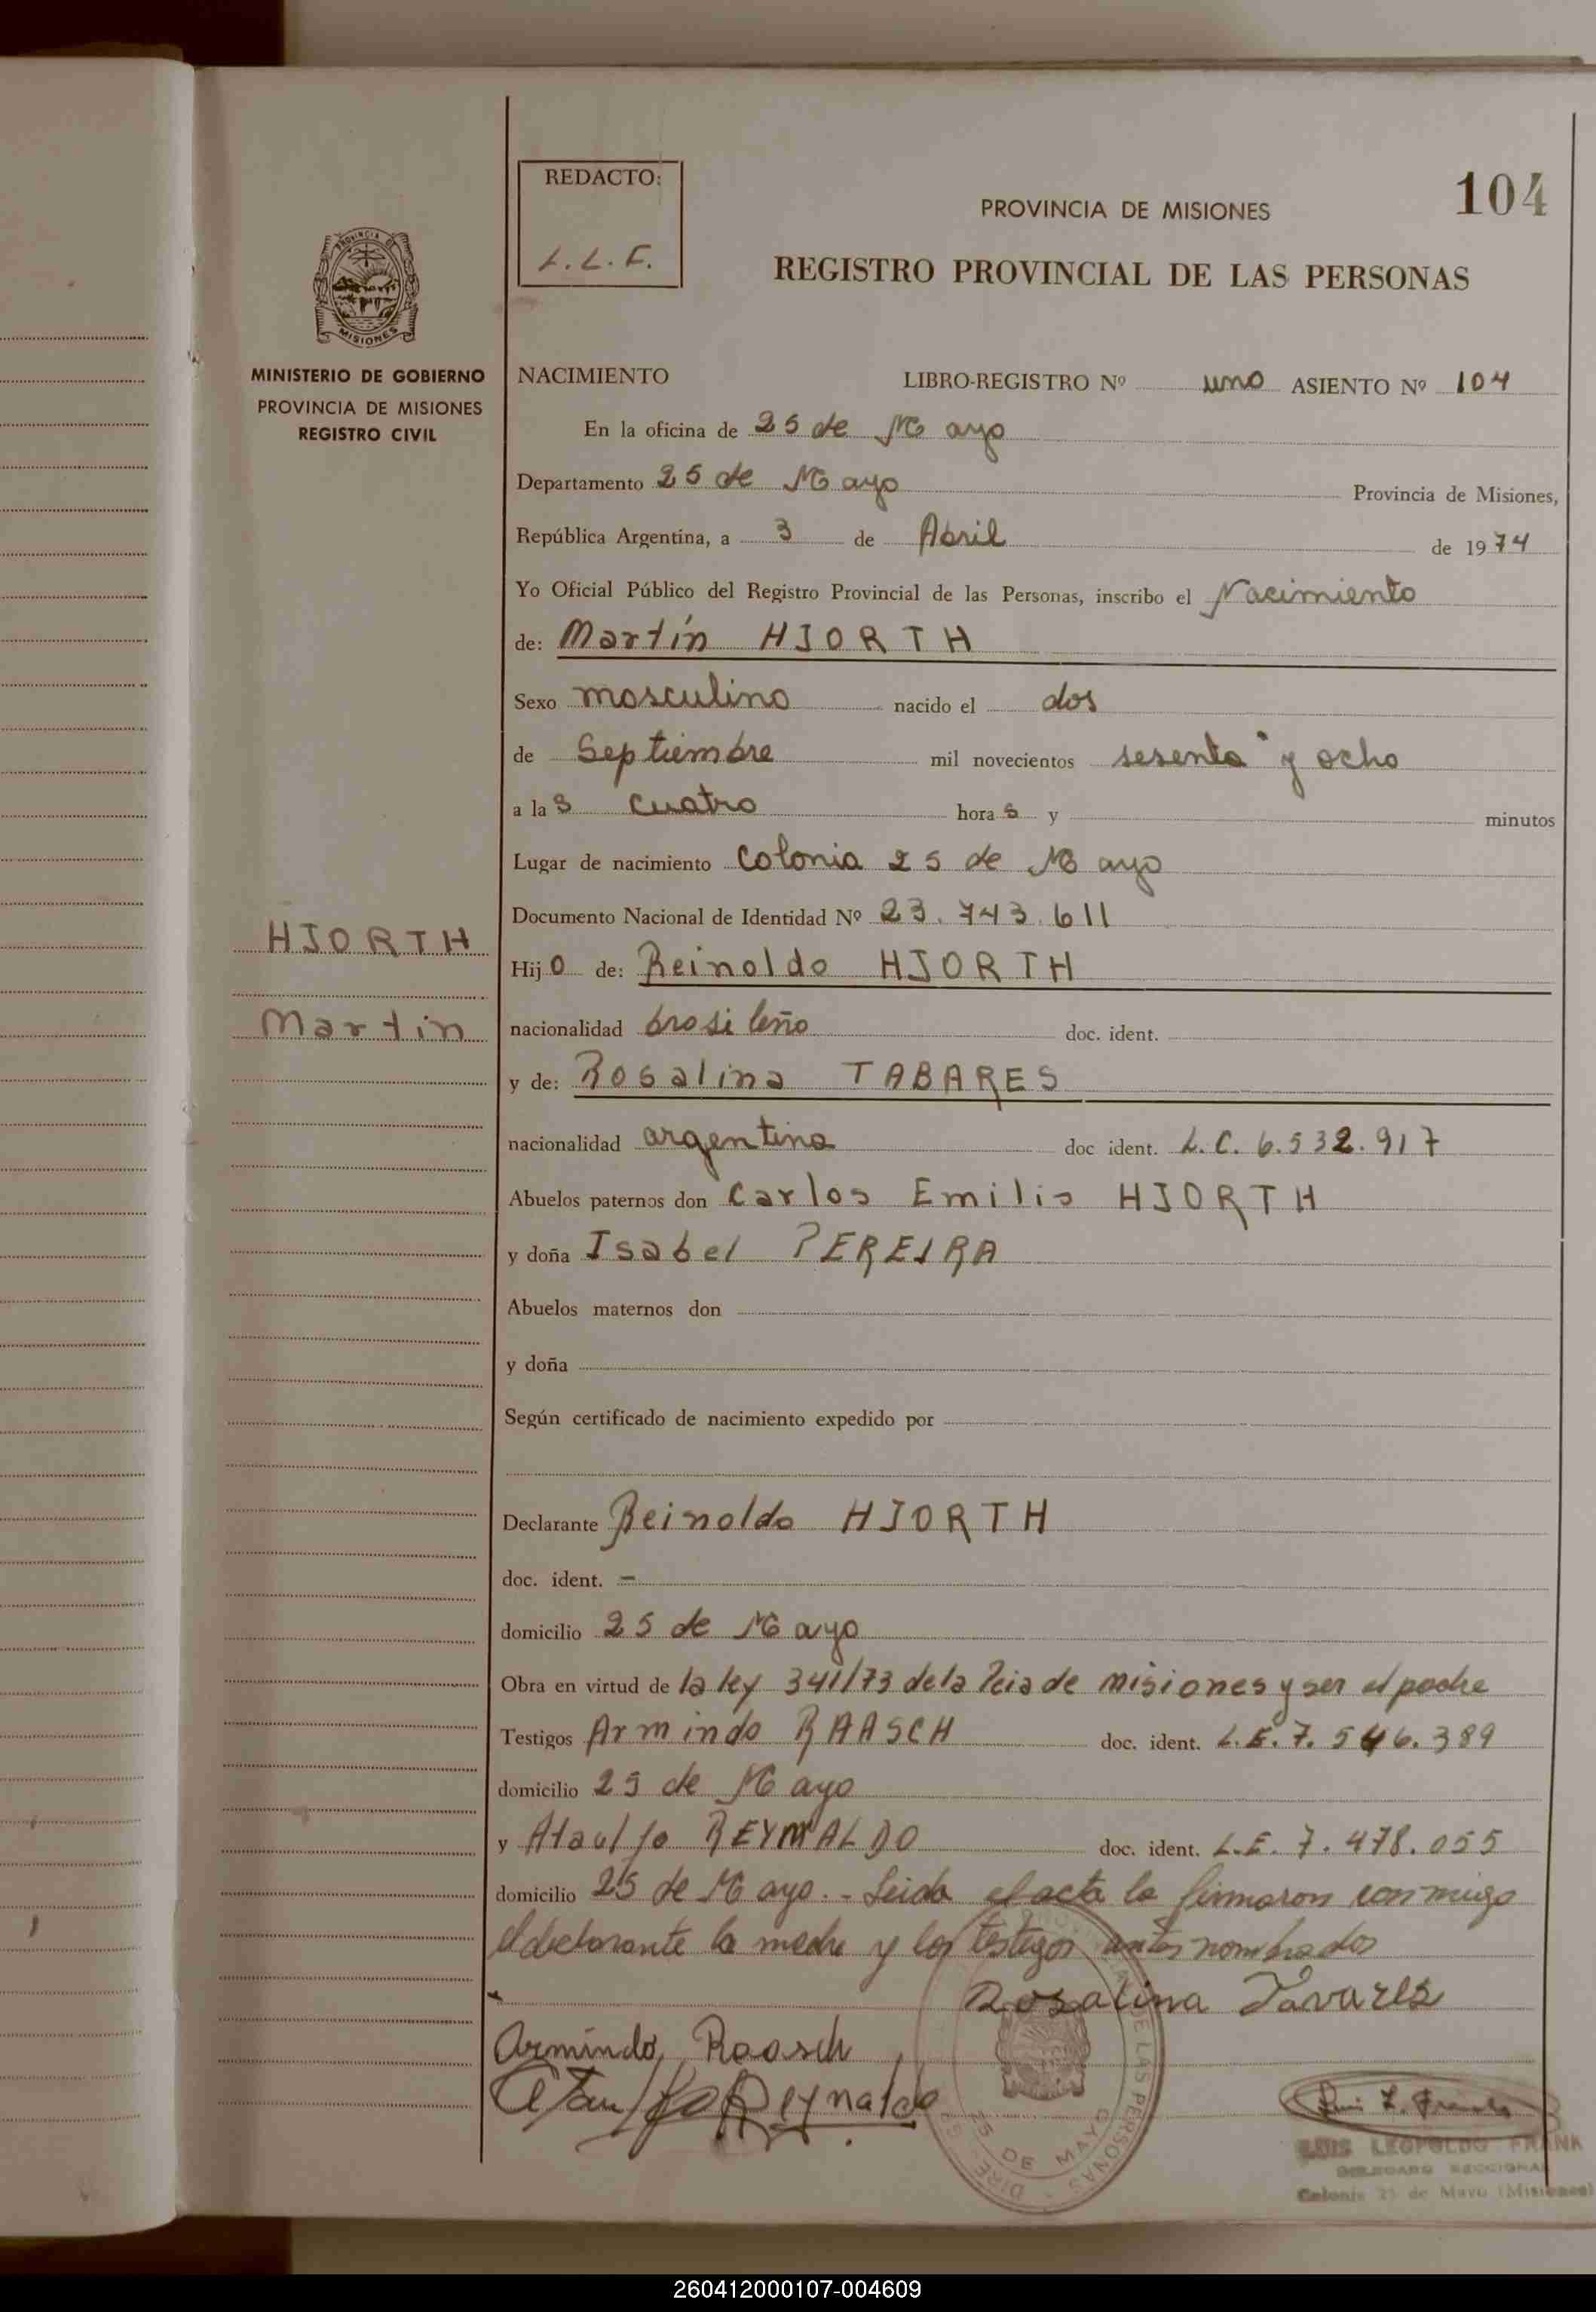 REDACTO:
L.L.F.
104
PROVINCIA DE MISIONES
REGISTRO PROVINCIAL DE LAS PERSONAS
MISIONES
MINISTERIO DE GOBIERNO
PROVINCIA DE MISIONES
REGISTRO CIVIL
HJORTH
Martin
NACIMIENTO LIBRO-REGISTRO Nº uno ASIENTO Nº 104
En la oficina de 25 de Mayo
Departamento 25 de Mayo Provincia de Misiones,
República Argentina, a 3 de Abril de 1974
Yo Oficial Público del Registro Provincial de las Personas, inscribo el Nacimiento
de: Martín HJORTH
Sexo masculino nacido el dos
de Septiembre mil novecientos sesenta y ocho
a las cuatro horas y minutos
Lugar de nacimiento Colonia 25 de Mayo
Documento Nacional de Identidad Nº 23.743.611
Hijo de: Reinoldo HJORTH
nacionalidad brasileño doc. ident.
y de: Rosalina TABARES
nacionalidad argentina doc ident. L.C. 6.532.917
Abuelos paternos don Carlos Emilio HJORTH
y doña Isabel PEREJRA
Abuelos maternos don
y doña
Según certificado de nacimiento expedido por
Declarante Reinoldo HJORTH
doc. ident. -
domicilio 25 de Mayo
Obra en virtud de la ley 341/73 de la Pcia de Misiones y ser el padre
Testigos Armindo RAASCH doc. ident. L.E. 7.546.389
domicilio 25 de Mayo
y Ataulfo REYNALDO doc. ident. L.E. 7.478.055
domicilio 25 de Mayo.- Leida el acta la firmaron conmigo
el declarante la madre y los testigos antes nombrados
Rosalina Tavares
Armindo Raasch
Ataulfo Reynaldo
25 DE MAYO
LUIS LEOPOLDO FRANK
DELEGADO SECCIONAL
Colonia 25 de Mayo (Misiones)
260412000107-004609